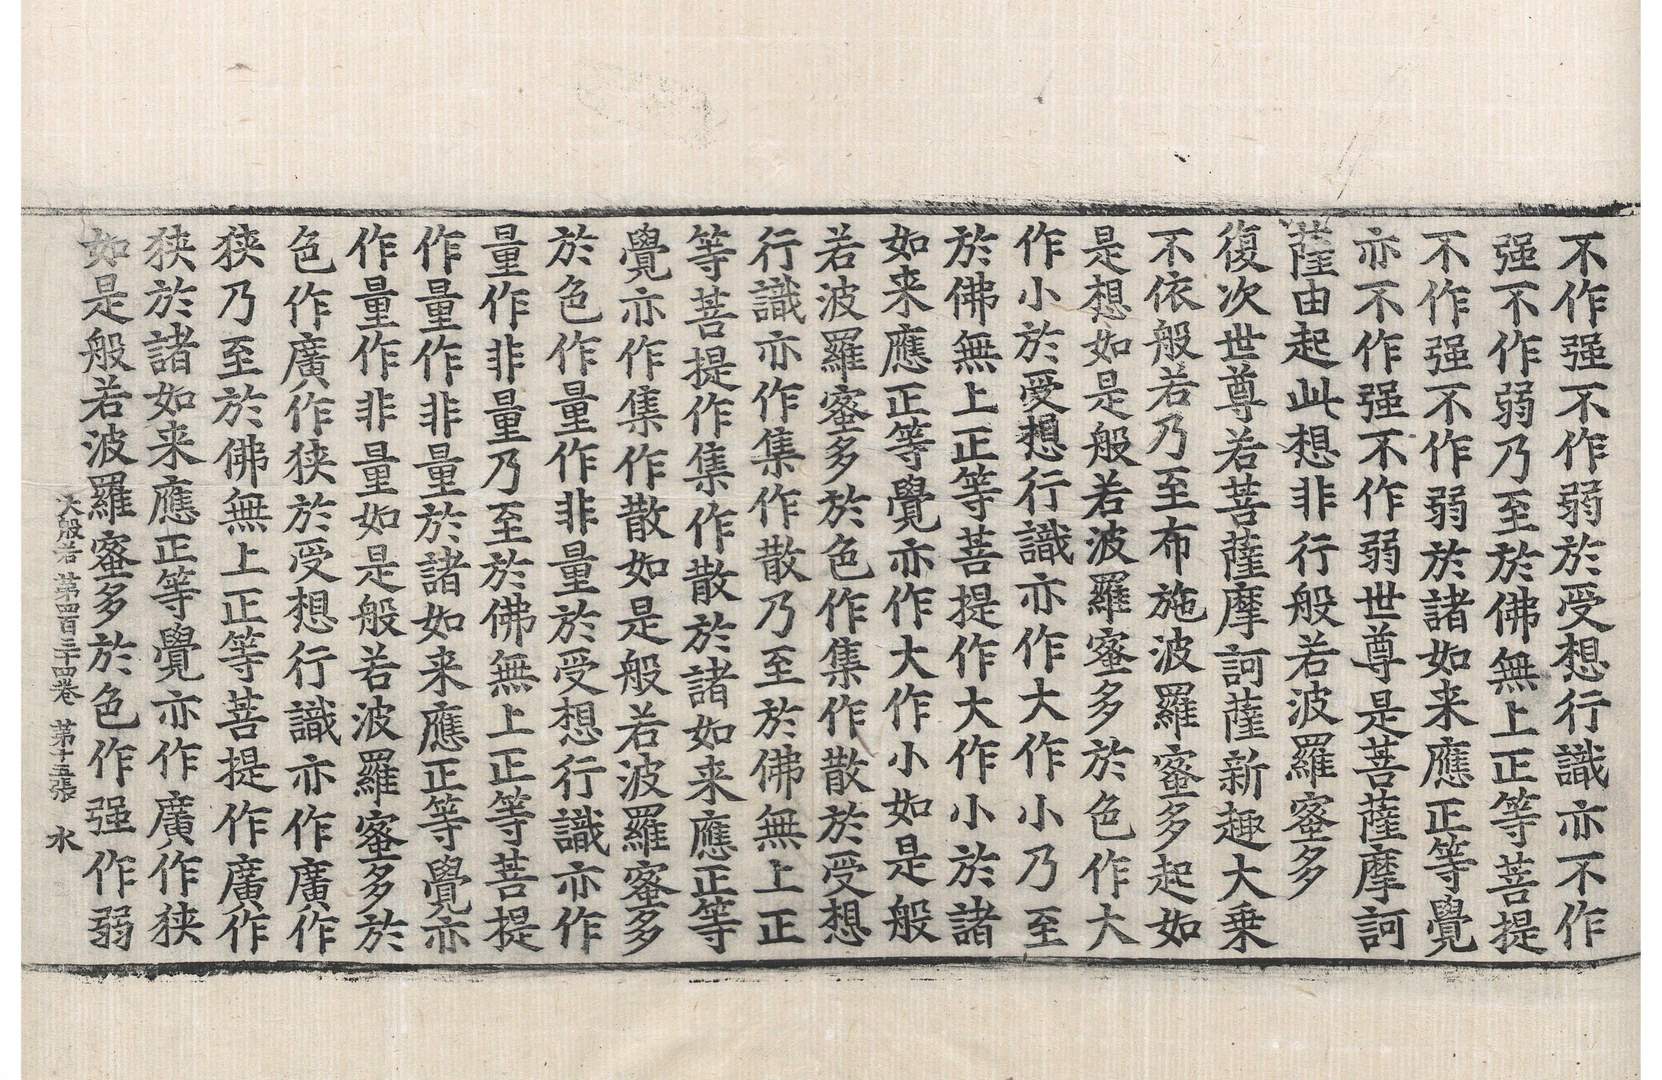 不作强不作弱於受想行識亦不作
强不作弱乃至於佛無上正等菩提
不作强不作弱於諸如来應正等覺
亦不作强不作弱世尊是菩薩摩訶
薩由起此想非行般若波羅蜜多
復次世尊若菩薩摩訶薩新趣大乗
不依般若乃至布施波羅蜜多起如
是想如是般若波羅蜜多於色作大
作小於受想行識亦作大作小乃至
於佛無上正等菩提作大作小於諸
如来應正等覺亦作大作小如是般
若波羅蜜多於色作集作散於受想
行識亦作集作散乃至於佛無上正
等菩提作集作散於諸如来應正等
覺亦作集作散如是般若波羅蜜多
於色作量作非量於受想行識亦作
量作非量乃至於佛無上正等菩提
作量作非量於諸如来應正等覺亦
作量作非量如是般若波羅蜜多於
色作廣作狹於受想行識亦作廣作
狹乃至於佛無上正等菩提作廣作
狹於諸如来應正等覺亦作廣作狹
如是般若波羅蜜多於色作强作弱
大般若 第四百三十四卷 第十五張 水